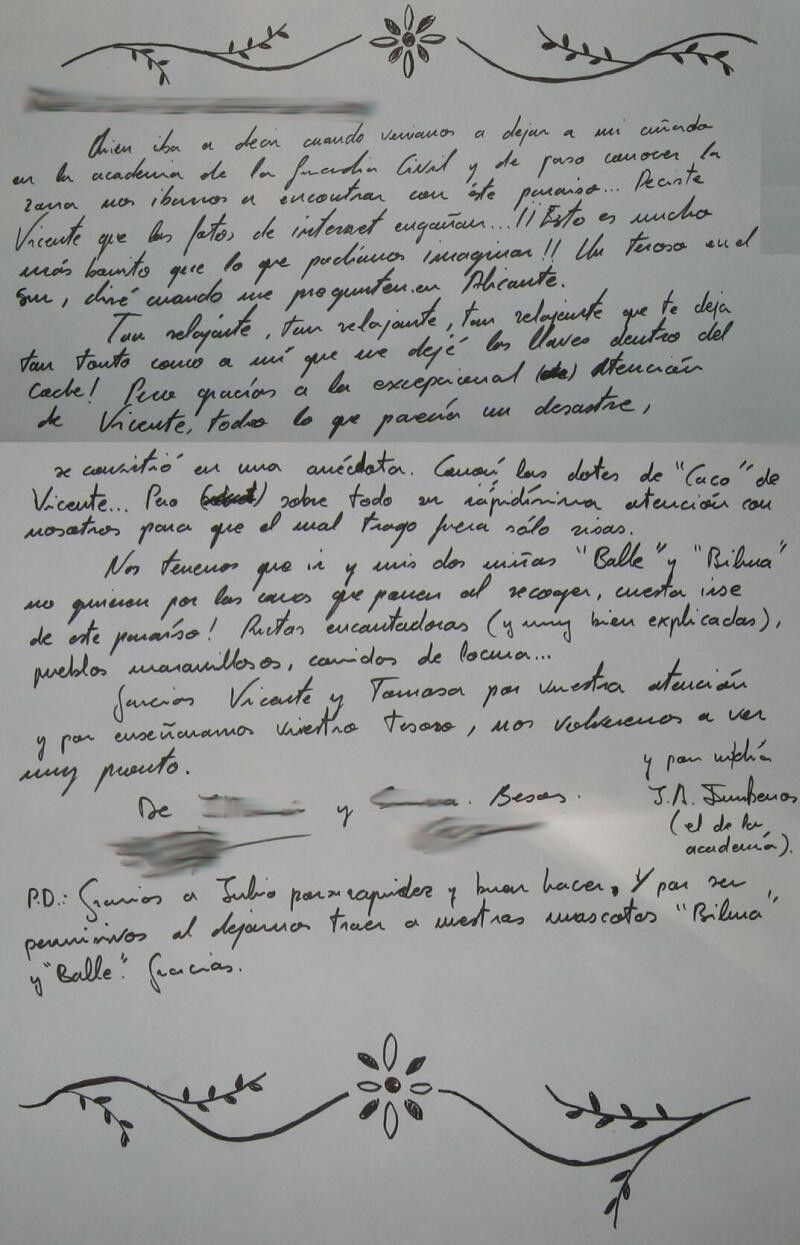 Quien iba a decir cuando veniamos a dejar a mi cuñado
en la academia de la Guardia Civil y de paso conocer la
zona nos ibamos a encontrar con éste paraiso... Deciste
Vicente que las fotos de internet engañan...¡¡Esto es mucho
más bonito que lo que podíamos imaginar!! Un tesoro en el
Sur, diré cuando me pregunten en Alicante.
Tan relajante, tan relajante, tan relajante que te deja
tan tonto como a mí que me dejé las llaves dentro del
Coche! Pero gracias a la excepcional atención
de Vicente, todo lo que parecía un desastre,
se convirtió en una anécdota. Conocí las dotes de "Caco" de
Vicente... Pero sobre todo su rápidisima atención con
nosotros para que el mal trago fuera sólo risas.
Nos tenemos que ir y mis dos niñas "Balle" y "Bilma"
no quieren por las caras que ponen al recoger, cuesta irse
de este paraíso! Rutas encantadoras (y muy bien explicadas),
pueblos maravillosos, comidas de locura...
Gracias Vicente y Tomasa por vuestra atención
y por enseñarnos vuestro tesoro, nos volveremos a ver
muy pronto.
y por
De y Besos. J.A.
(el de la
academia).
P.D.: Gracias a Julio por su rapidez y buen hacer. Y por ser
permisivos al dejarnos traer a nuestras mascotas "Bilma"
y "Balle". Gracias.